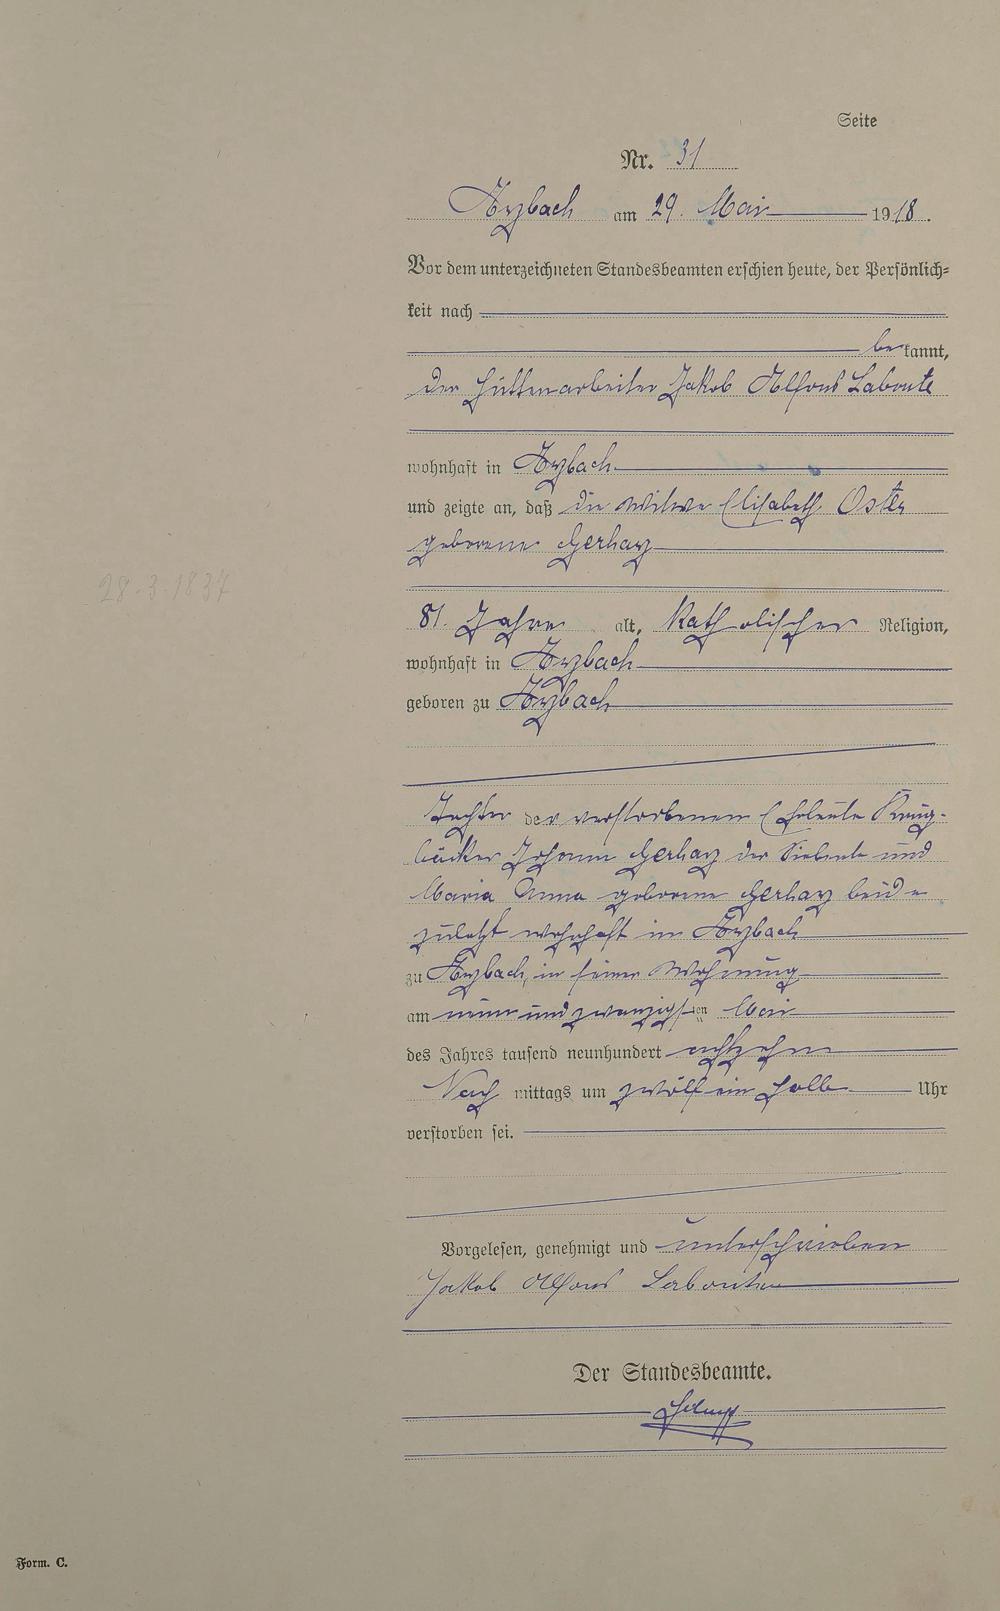 Seite
Nr. 31
Arzbach am 29. Mai 1918.
Vor dem unterzeichneten Standesbeamten erschien heute, der Persönlich-
keit nach
bekannt,
der Hüttenarbeiter Jakob Alfons Labonte
wohnhaft in Arzbach
und zeigte an, daß die Witwe Elisabeth Oster
geborene Gerharz
28.3.1837
81 Jahre alt, katholischer Religion,
wohnhaft in Arzbach
geboren zu Arzbach
Tochter der verstorbenen Eheleute Krug-
bäcker Johann Gerharz der Siebente und
Maria Anna geborene Gerharz beide
zuletzt wohnhaft in Arzbach
zu Arzbach, in seiner Wohnung
am neunundzwanzigsten Mai
des Jahres tausend neunhundert achtzehn
Nachmittags um zwölf ein halb Uhr
verstorben sei.
Vorgelesen, genehmigt und unterschrieben
Jakob Alfons Labonte
Der Standesbeamte.
Form. C.